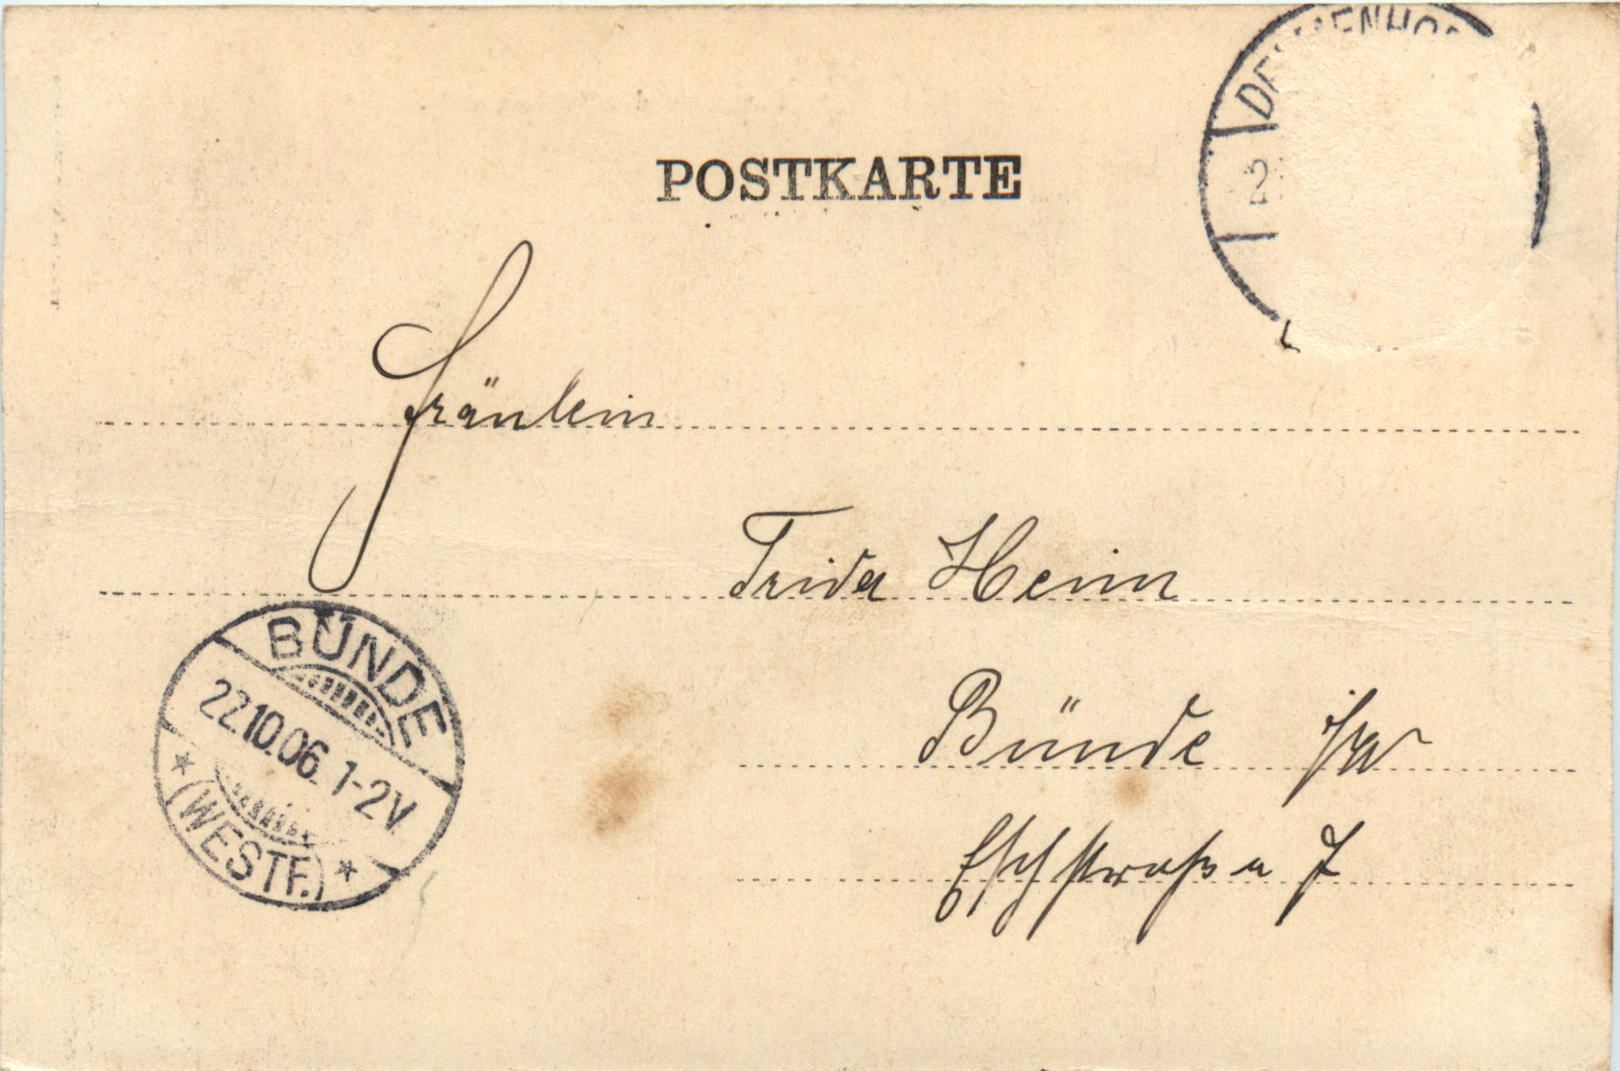 POSTKARTE
Fräulein
Frida Heim
Bünde i/W
Eschstraße 7
BÜNDE
22.10.06. 1-2V.
* (WESTF.) *